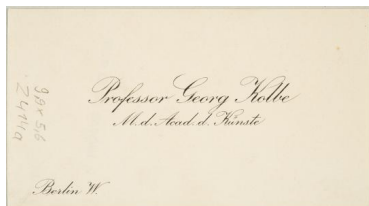 Professor Georg Kolbe
M. d. Acad. d. Künste
Berlin W.